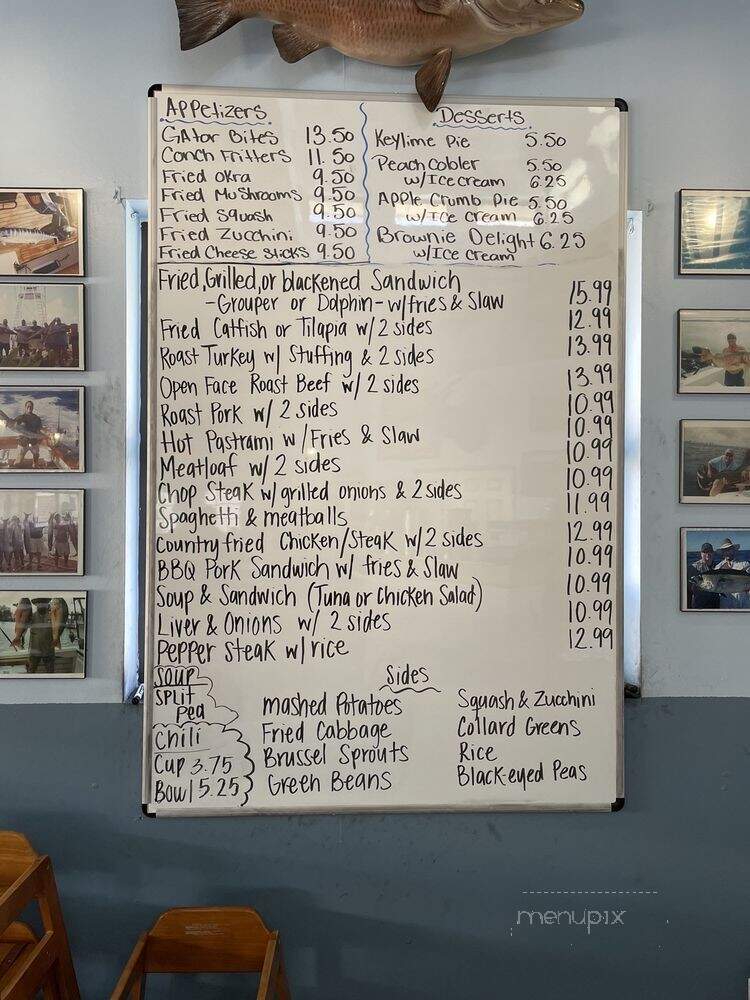 Appetizers
Gator Bites 13.50
Conch Fritters 11.50
Fried Okra 9.50
Fried Mushrooms 9.50
Fried Squash 9.50
Fried Zucchini 9.50
Fried Cheese Sticks 9.50
Desserts
Keylime Pie 5.50
Peach Cobler 5.50
w/Ice cream 6.25
Apple Crumb Pie 5.50
w/Ice cream 6.25
Brownie Delight 6.25
w/Ice cream
Fried, Grilled, or blackened Sandwich
-Grouper or Dolphin- w/fries & Slaw 15.99
Fried Catfish or Tilapia w/ 2 sides 12.99
Roast Turkey w/ Stuffing & 2 sides 13.99
Open Face Roast Beef w/ 2 sides 13.99
Roast Pork w/ 2 sides 10.99
Hot Pastrami w/Fries & Slaw 10.99
Meatloaf w/ 2 sides 10.99
Chop Steak w/grilled onions & 2 sides 10.99
Spaghetti & meatballs 11.99
Country fried Chicken/Steak w/ 2 sides 12.99
BBQ Pork Sandwich w/ fries & Slaw 10.99
Soup & Sandwich (Tuna or Chicken Salad) 10.99
Liver & Onions w/ 2 sides 10.99
Pepper Steak w/rice 12.99
Soup
Split
Pea
Chili
Cup 3.75
Bowl 5.25
Sides
mashed Potatoes
Fried Cabbage
Brussel Sprouts
Green Beans
Squash & Zucchini
Collard Greens
Rice
Black-eyed Peas
menupix